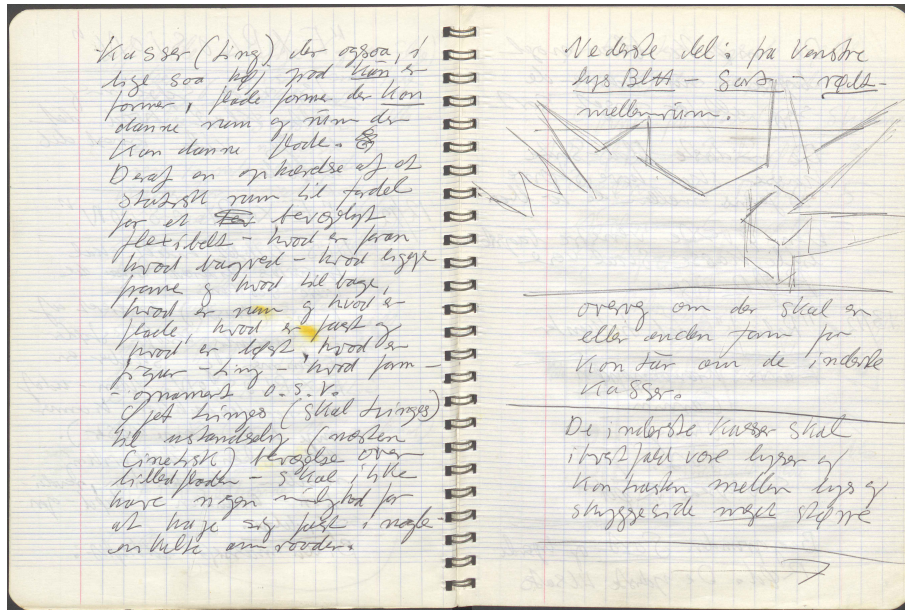 Kasser (ting) der ogsaa, i
lige saa høj grad kun er
former, flade former der kan
danne rum og rum der
kan danne flade.
Deraf en ophævelse af et
statisk rum til fordel
for et bevægeligt
flexibelt - hvad er foran
hvad bagved - hvad ligger
fremme og hvad tilbage,
hvad er rum og hvad er
flade, hvad er fast og
hvad er løst, hvad er
figur - ting - hvad form -
- ornament o.s.v.
Øjet tvinges (skal tvinges)
til ustandselig (næsten
Cinetisk) bevægelse over
billedfladen - skal ikke
have nogen mulighed for
at hage sig fast i nogle
enkelte områder.
Nederste del: fra venstre
lys Blå - Sort - rødt -
mellemrum.
overvej om der skal en
eller anden form for
kontur om de inderste
Kasser.
De inderste kasser skal
i hvert fald være lyser og
kontrasten mellem lys og
skyggeside meget større